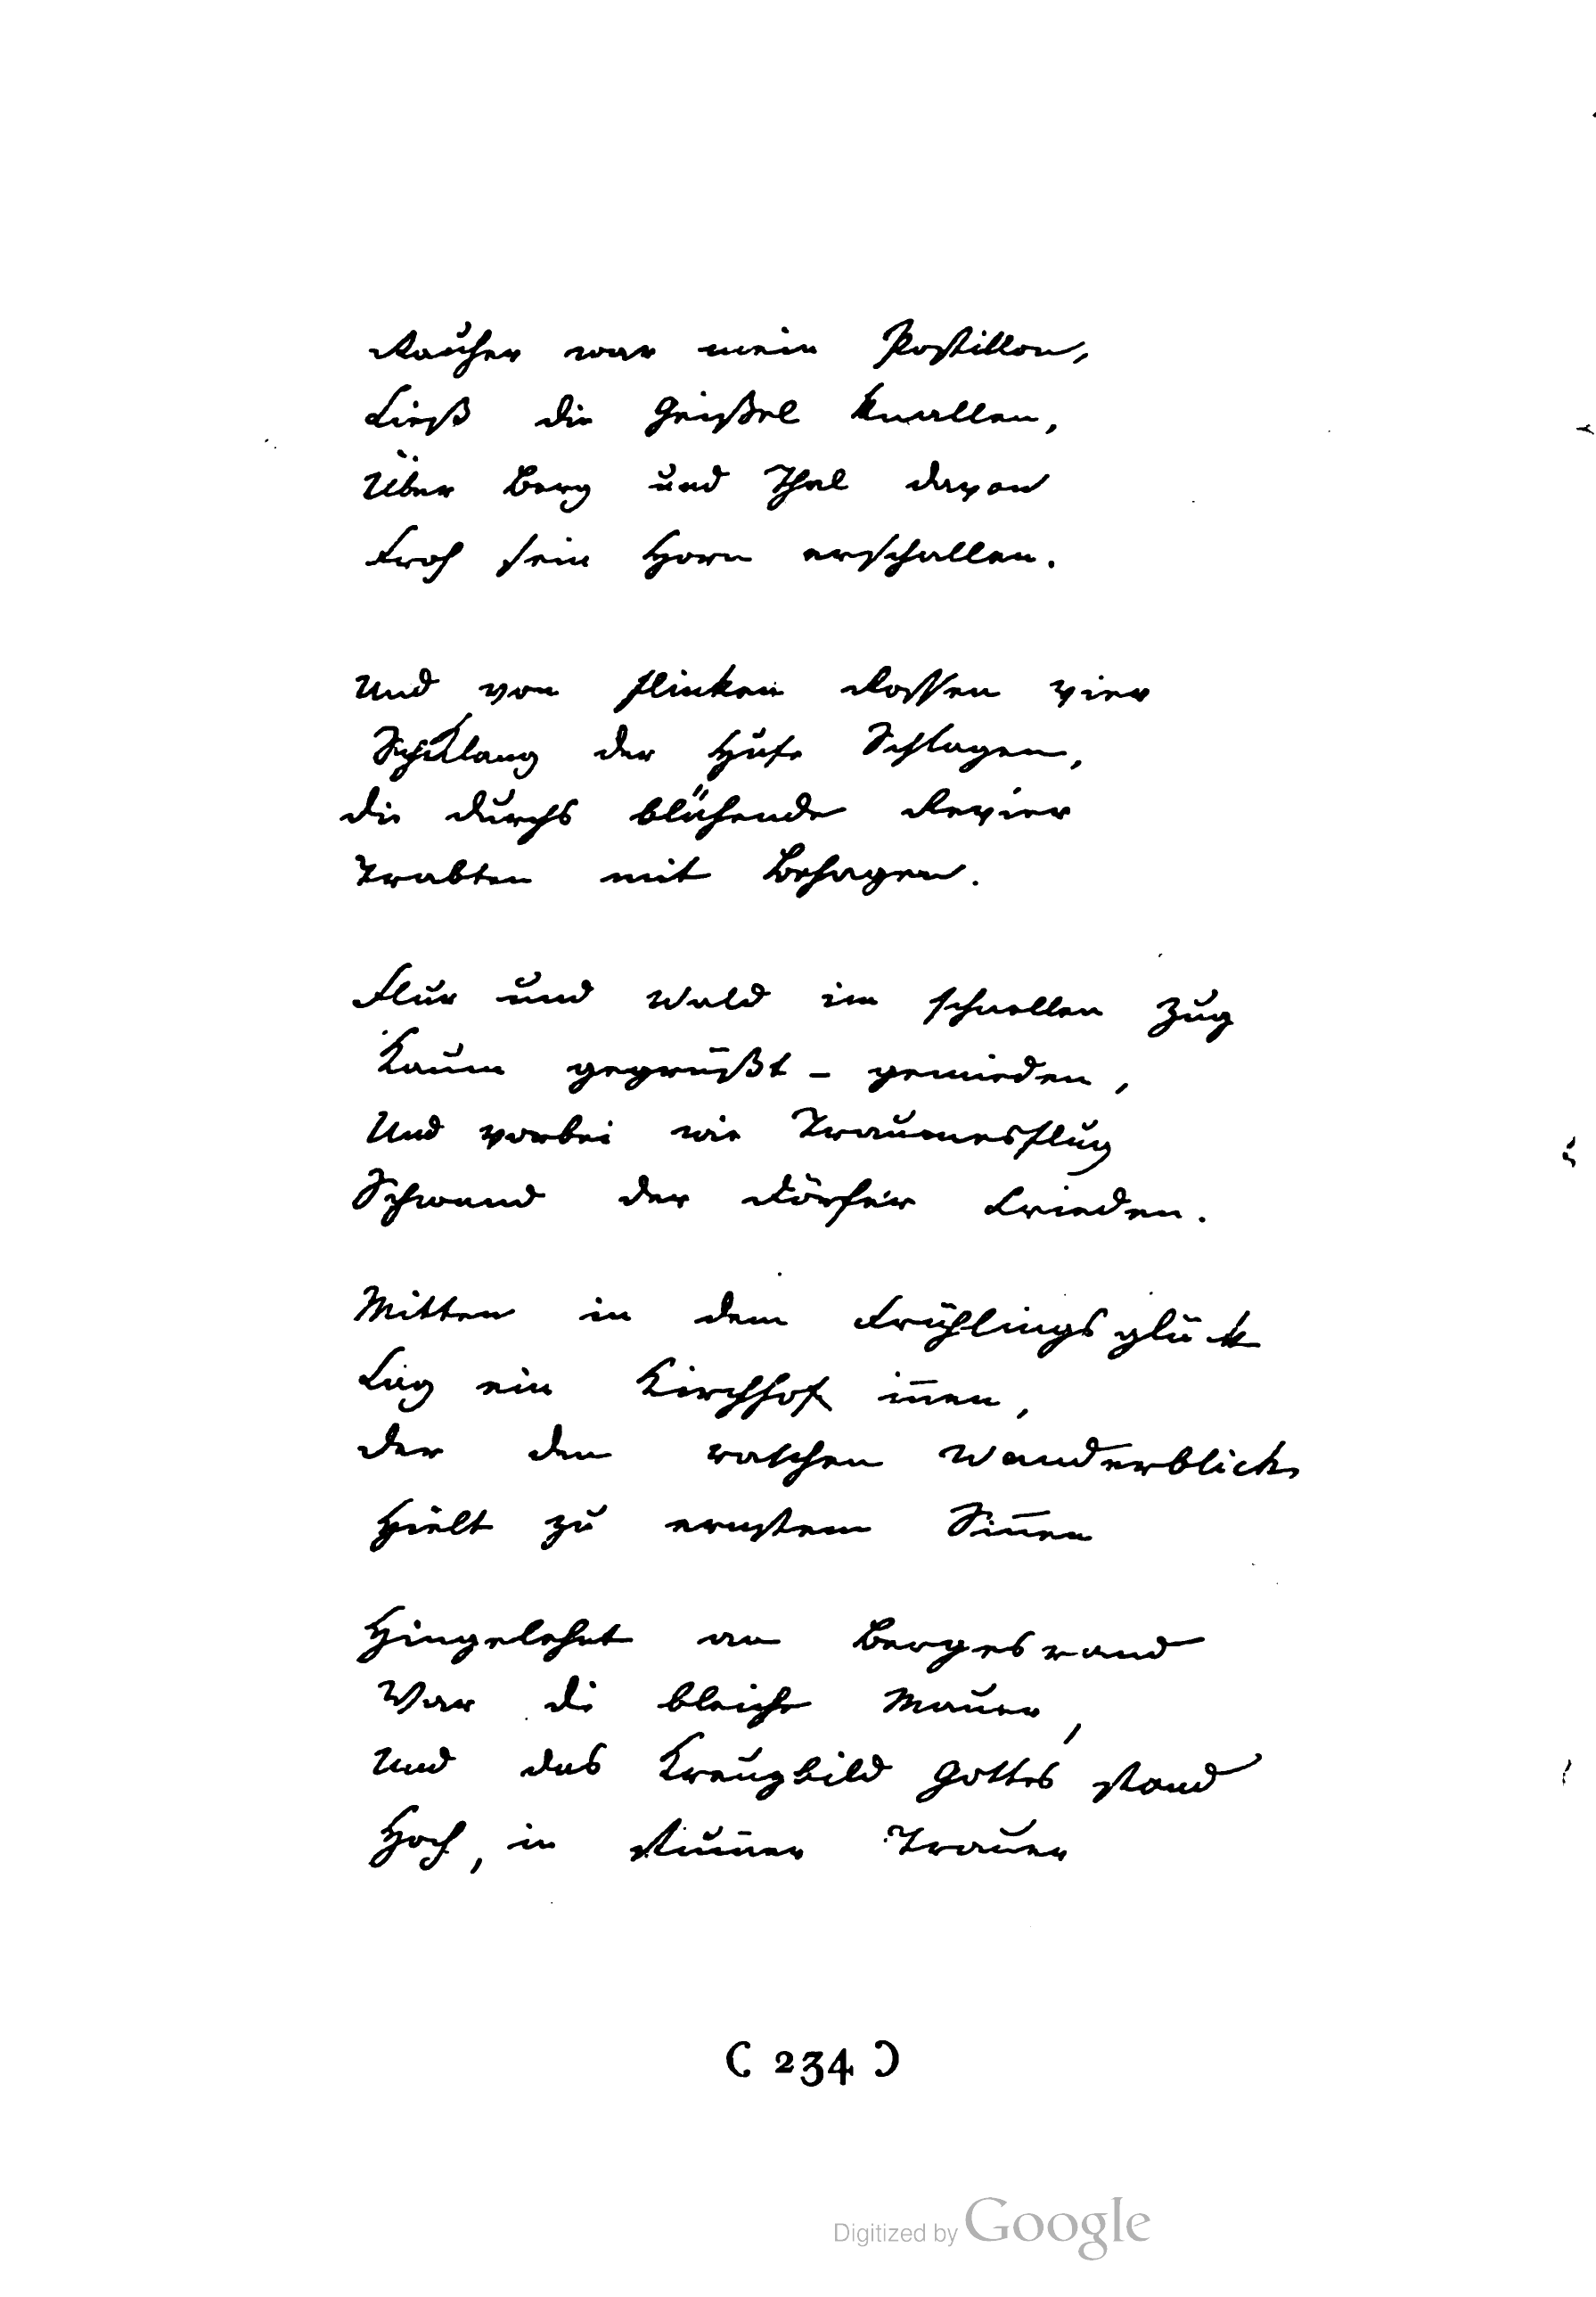 Rauher war mein Postillon,
Ließ die Geißel knallen,
Über Berg und Thal davon
Froh sein Horn erschallen.
Und von flinken Rossen vier
Klang der Hufe Schlagen,
Die durchs blühende Revier
Trabten mit Behagen.
Flur und Wald im schnellen Zug
Kaum gegrüßt – gemieden,
Und vorbei wie Traumesflug
Schwand der Dörfer Frieden.
Mitten in dem Frühlingsglück
Lag ein Kirchhof innen,
Der den raschen Wanderblick
Hielt zu ernstem Sinnen
Hingelehnt an Bergesrand
War die bleiche Mauer,
Und das Kreuzbild Gottes stand
Hoch, in stummer Trauer
( 234 )
Digitized by Google